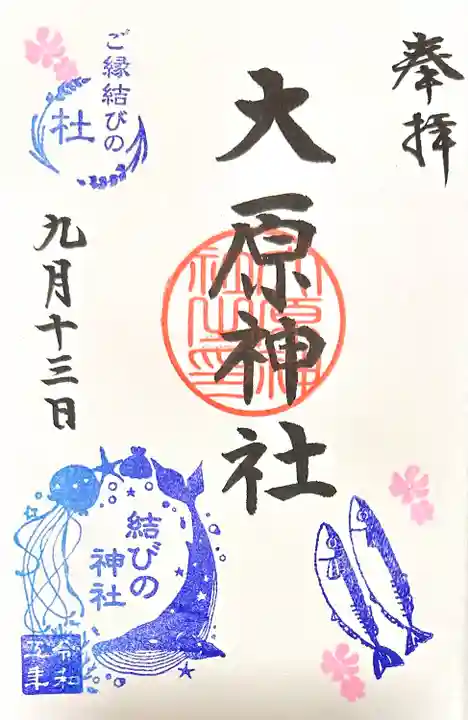 奉拝
大原神社
大原神社之印
ご縁結びの
杜
九月十三日
結びの
神社
令和
五年